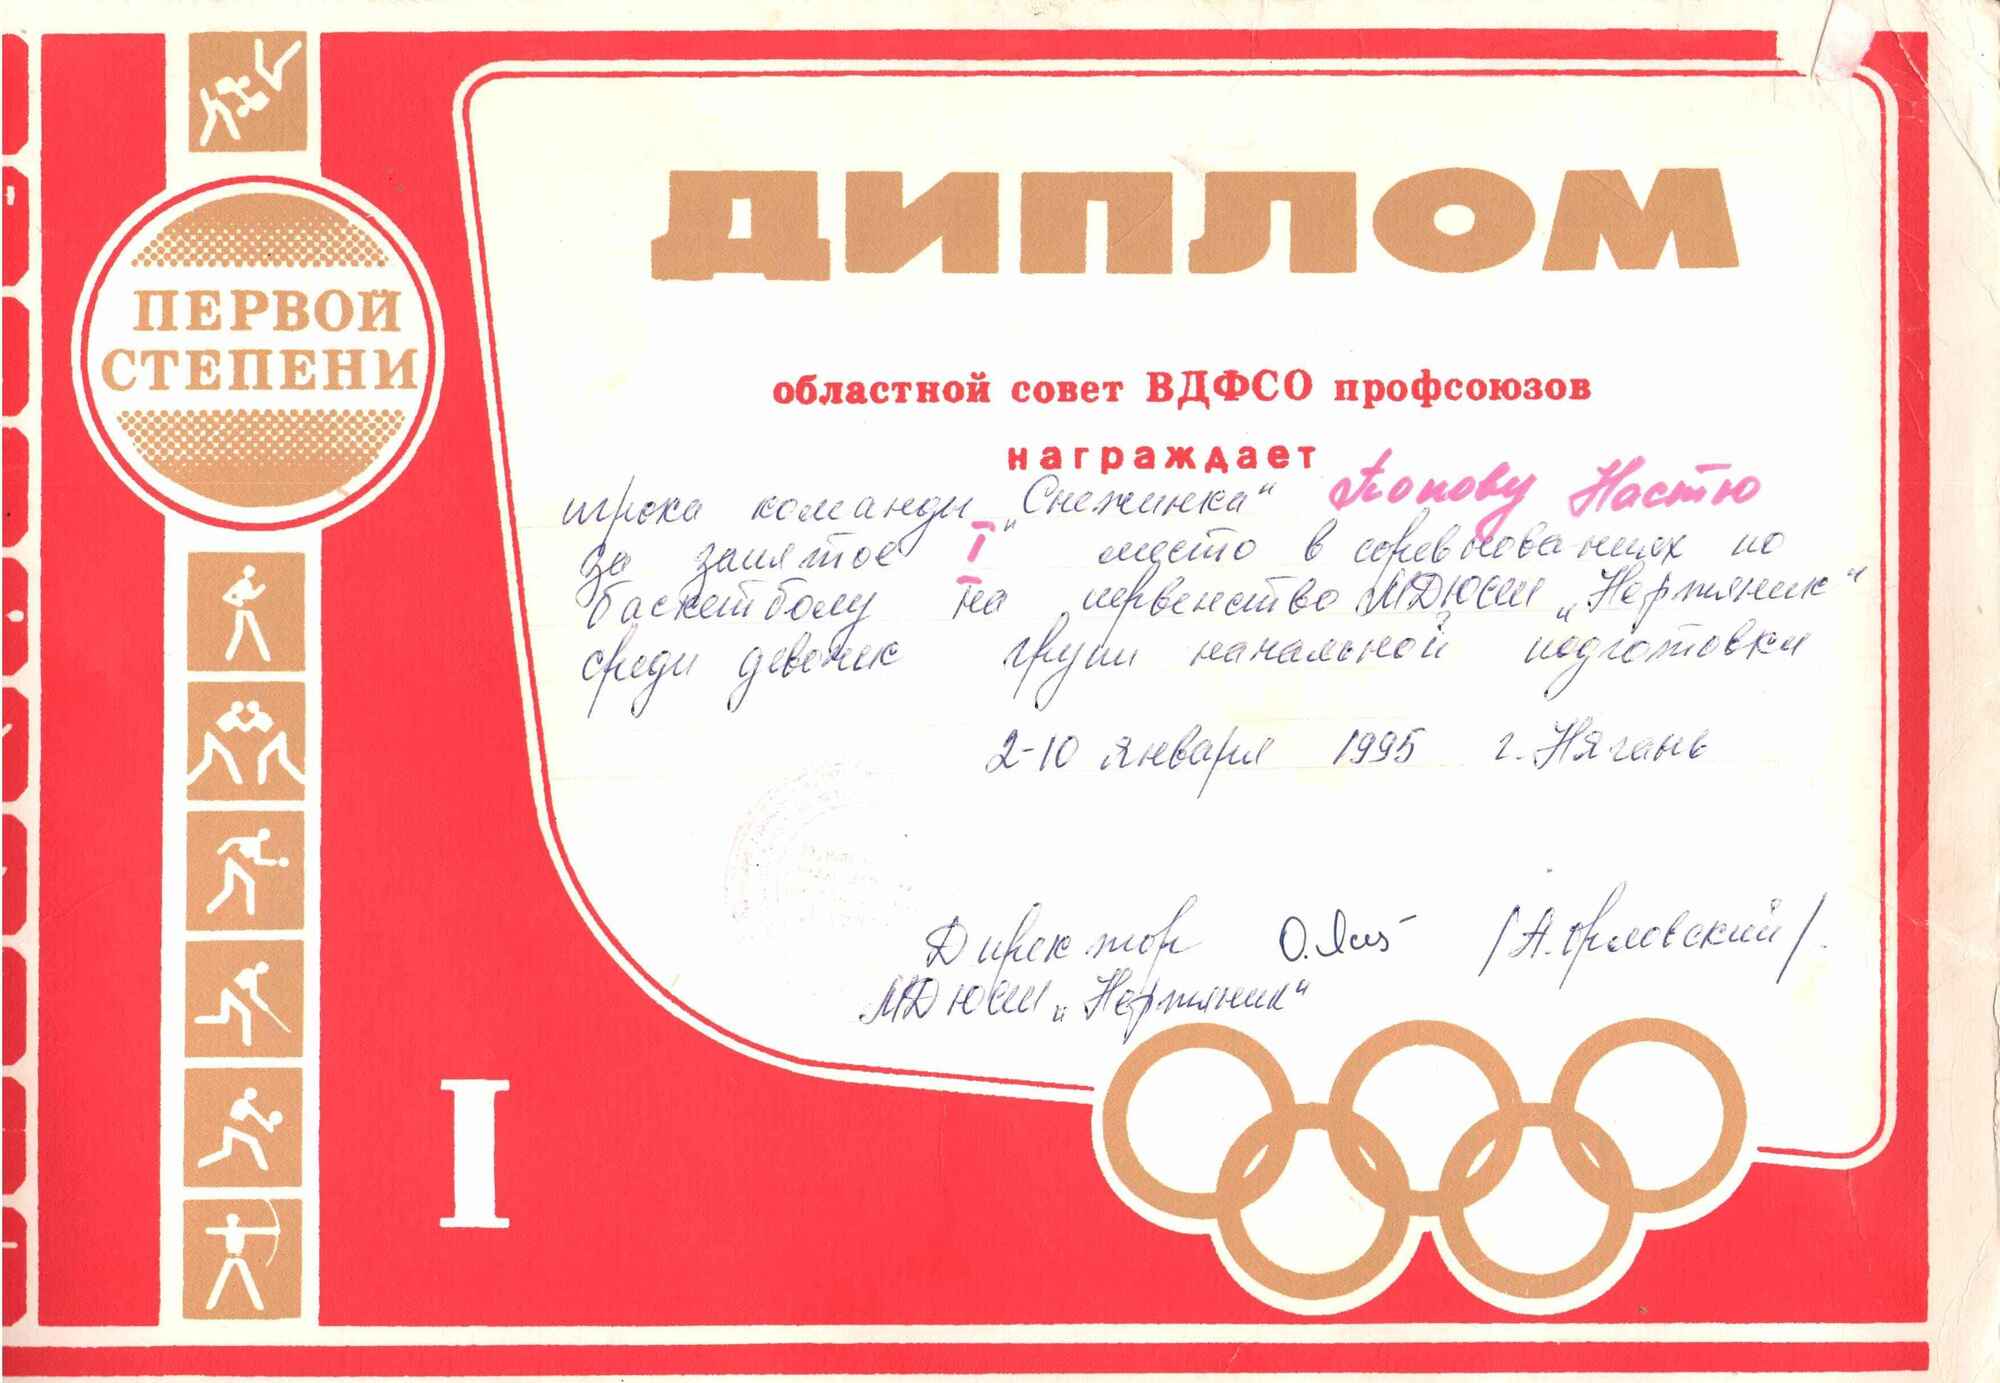 ДИПЛОМ
ПЕРВОЙ
СТЕПЕНИ
областной совет ВДФСО профсоюзов
награждает
игрока команды „Снежинка“ Попову Настю
за занятое I место в соревнованиях по
баскетболу на первенство МДЮСШ „Нефтяник“
среди девочек групп начальной подготовки
2-10 января 1995 г. Нягань
Директор /А. Орловский/.
МДЮСШ „Нефтяник“
I